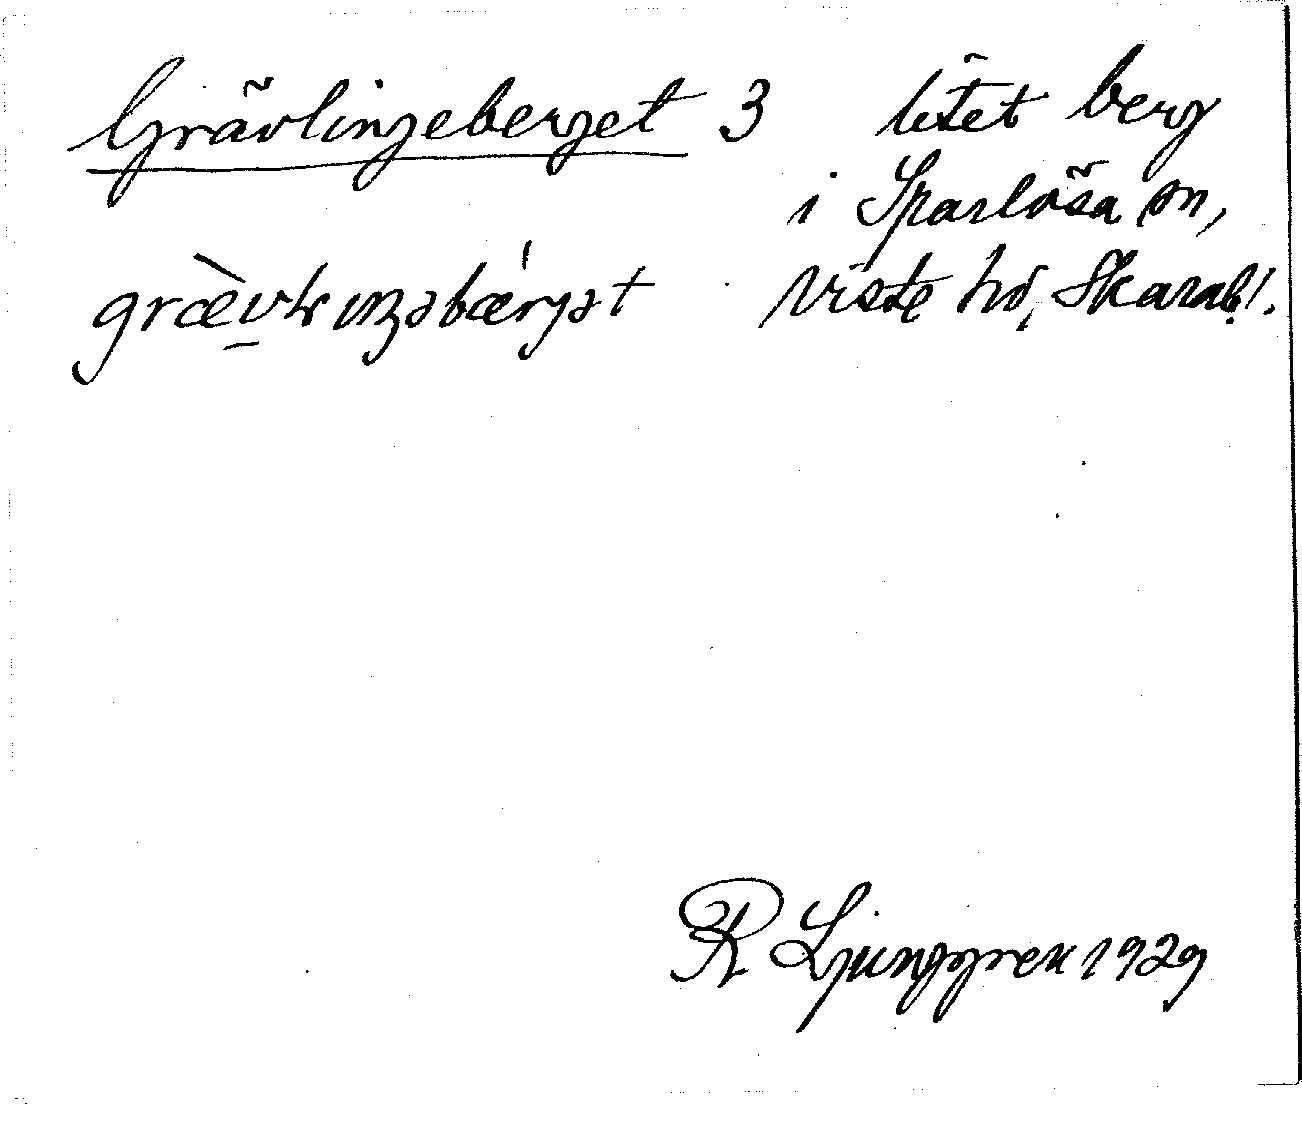 Grävlingeberget 3 litet berg
i Sparlösa sn,
Viste hd, Skarab. l.
R Ljunggren 1929